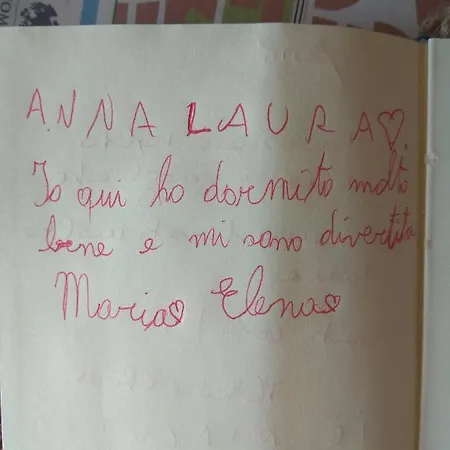 ANNA LAURA♡
Io qui ho dormito molto
bene e mi sono divertita
Maria♡ Elena♡